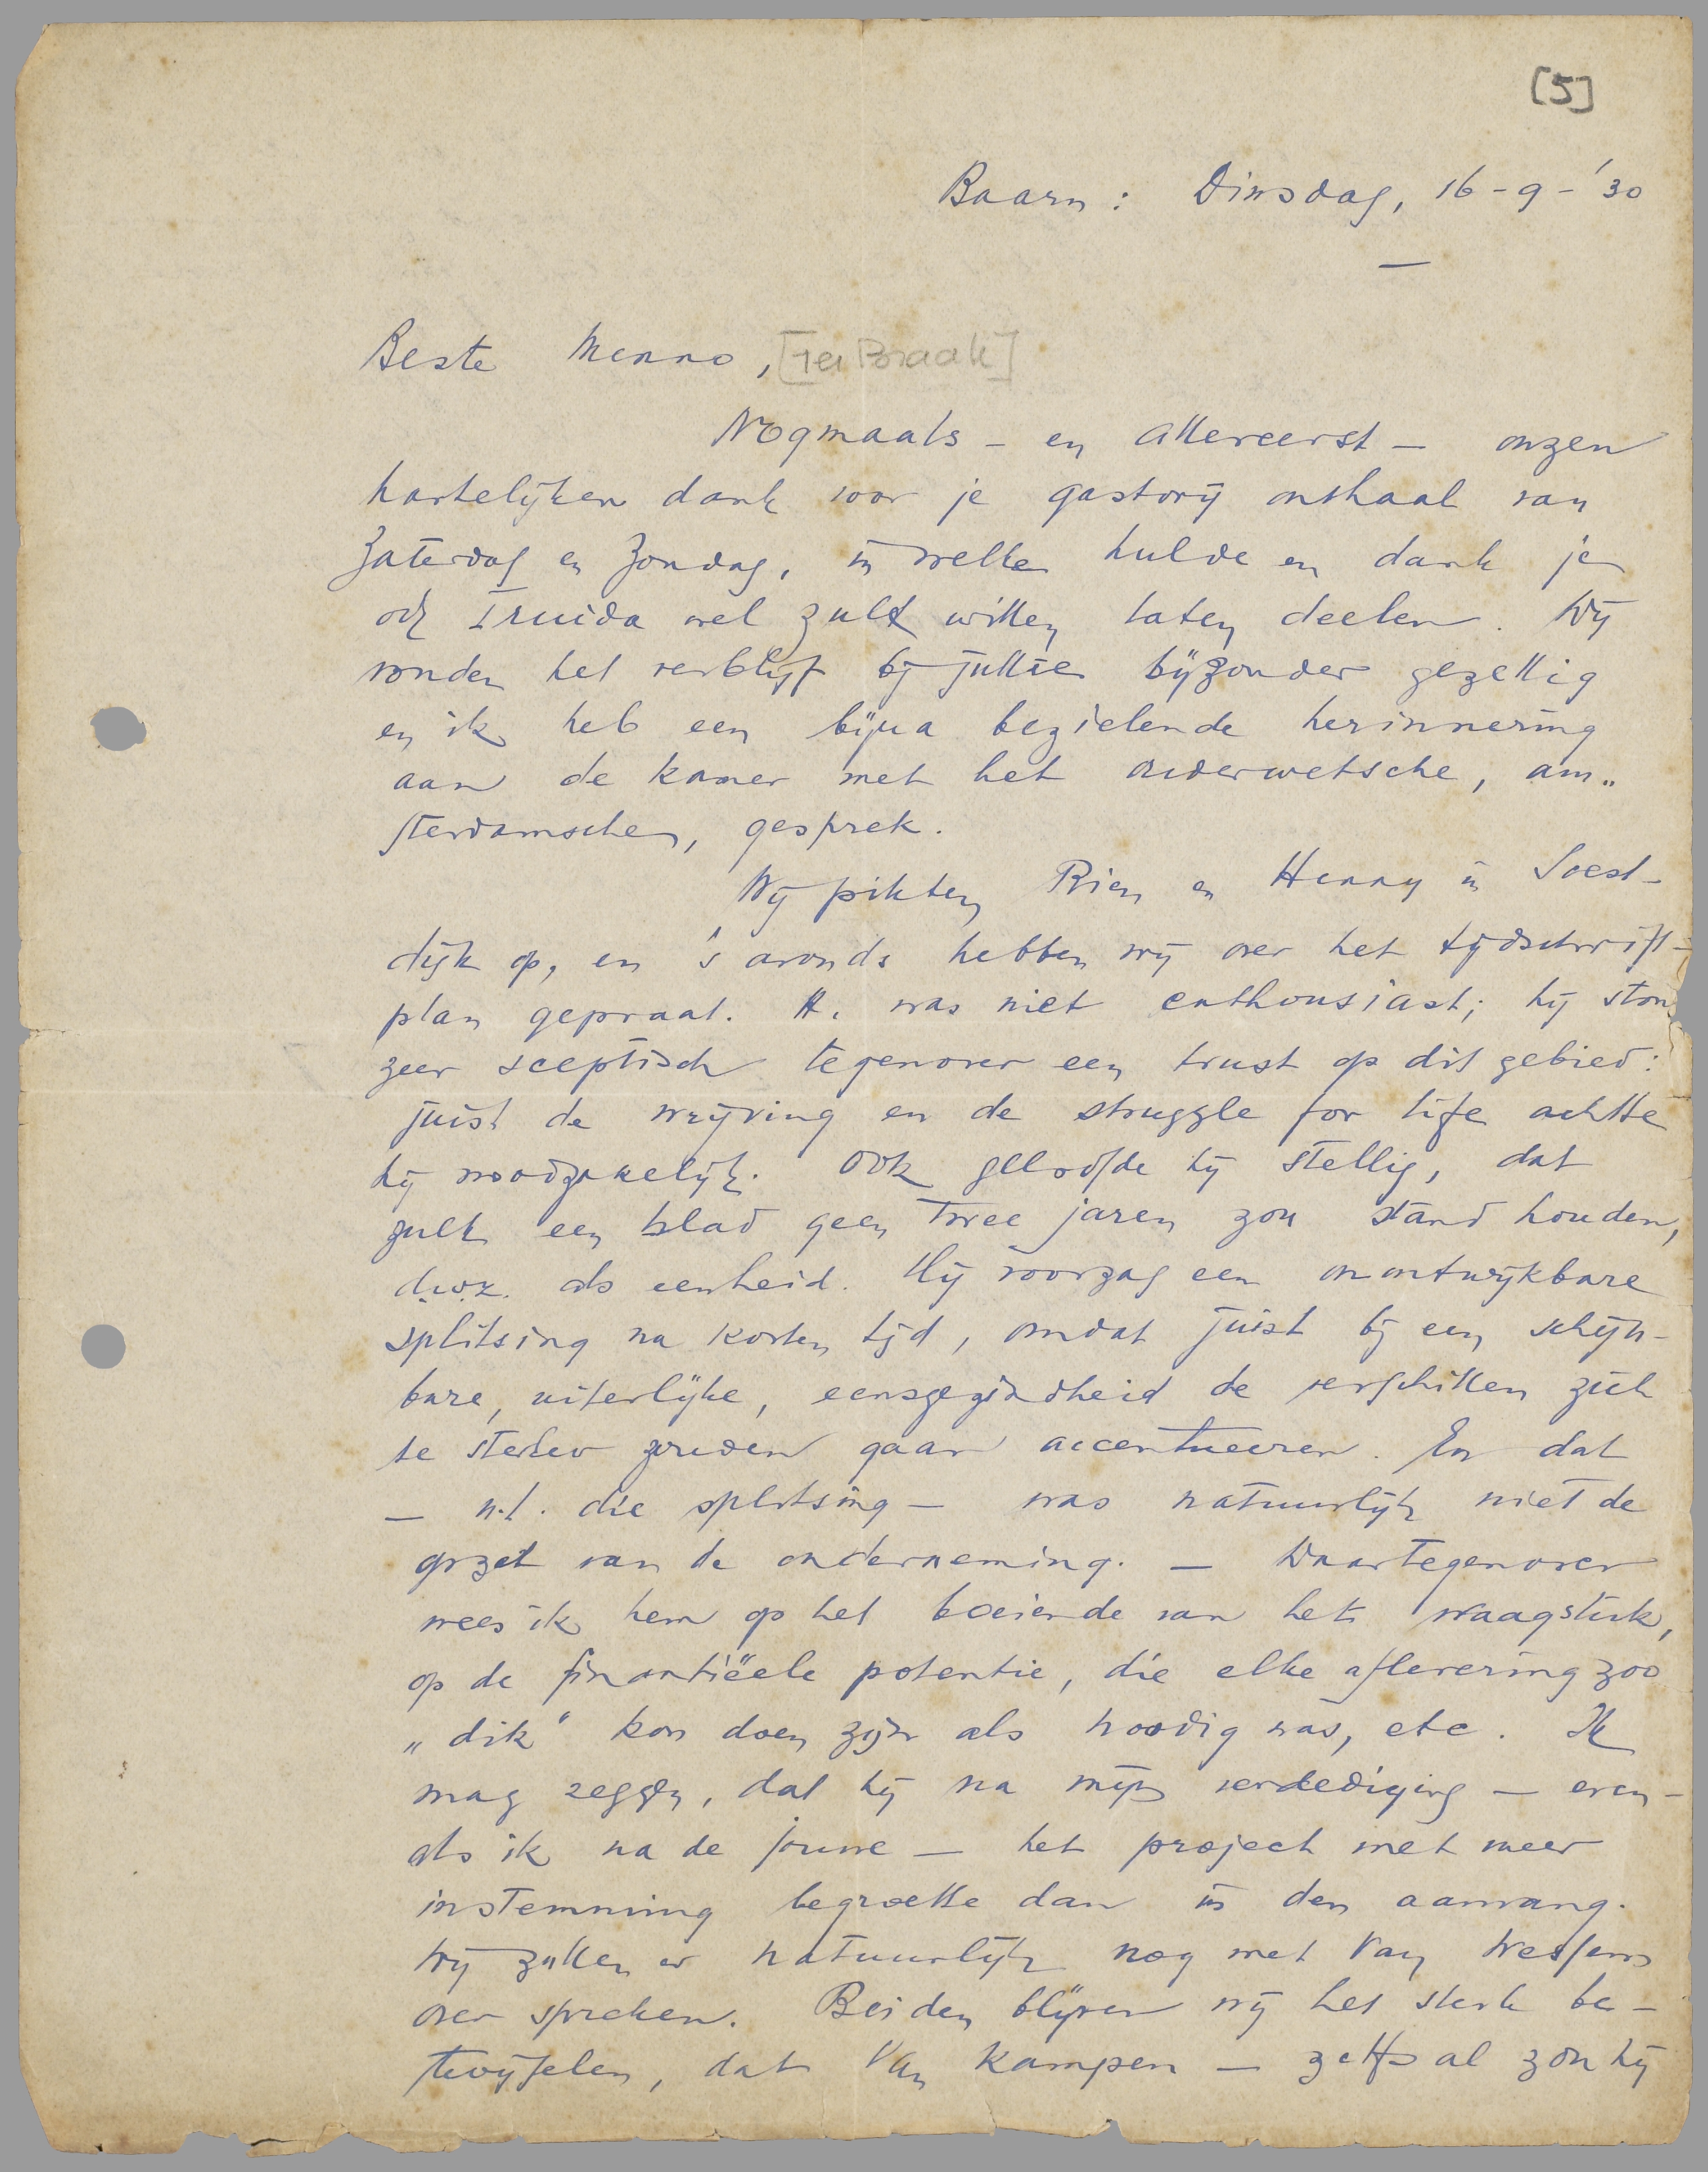 [5]
Baarn: Dinsdag, 16-9-'30
—
Beste Menno, [ter Braak]
Nogmaals - en allereerst - onzen
hartelijken dank voor je gastvrij onthaal van
Zaterdag en Zondag, in welke hulde en dank je
ook Truida wel zult willen laten deelen. Wij
vonden het verblijf bij jullie bijzonder gezellig
en ik heb een bijna bezielende herinnering
aan de kamer met het ouderwetsche, am„
sterdamsche, gesprek.
Wij pikten Rien en Henny in Soest-
dijk op, en 's avonds hebben wij over het tijdschrift-
plan gepraat. H. was niet enthousiast; hij ston
zeer sceptisch tegenover een trust op dit gebied:
juist de wrijving en de struggle for life achtte
hij noodzakelijk. Ook geloofde hij stellig, dat
zulk een blad geen twee jaren zou stand houden,
d.w.z. als eenheid. Hij voorzag een onontwijkbare
splitsing na korten tijd, omdat juist bij een schijn-
bare, uiterlijke, eensgezindheid de verschillen zich
te sterker zouden gaan accentueeren. En dat
— n.l. die splitsing — was natuurlijk niet de
opzet van de onderneming. — Daartegenover
wees ik hem op het boeiende van het waagstuk,
op de finantiëele potentie, die elke aflevering zoo
„dik" kon doen zijn als noodig was, etc. Ik
mag zeggen, dat hij na mijn verdediging — even-
als ik na de jouwe — het project met meer
instemming begroette dan in den aanvang.
Wij zullen er natuurlijk nog met Van Wessem
over spreken. Beiden blijven wij het sterk be-
twijfelen, dat Van Kampen — zelfs al zou hij